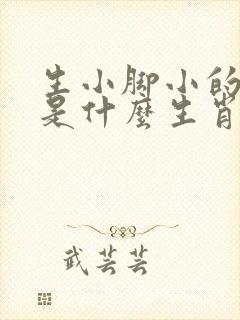 生小脚小的
是什麼生肖
武芸芸